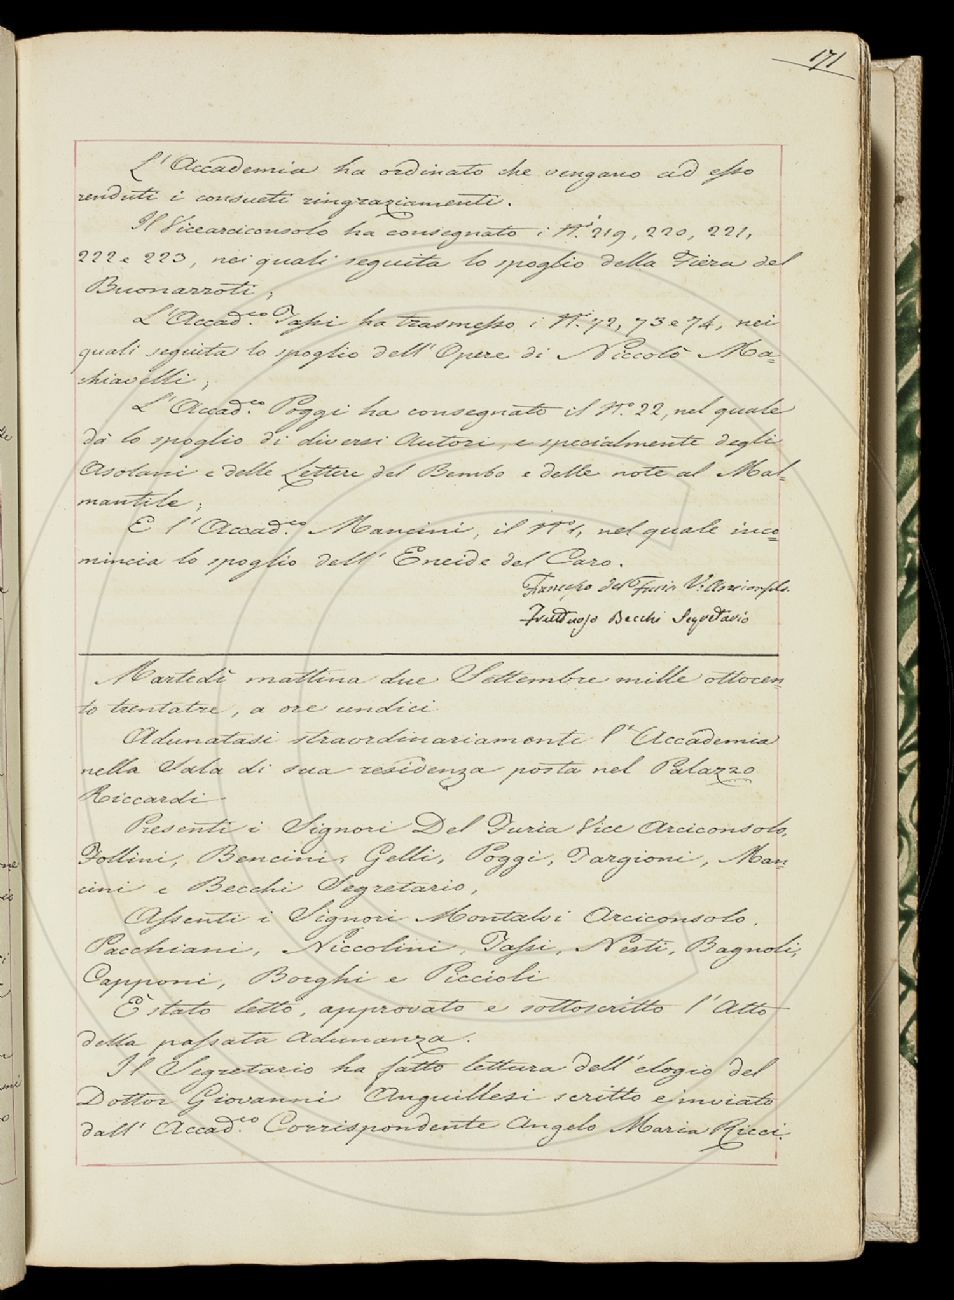 171
L'Accademia ha ordinato che vengano ad esso
renduti i consueti ringraziamenti.
Il Vicearciconsolo ha consegnato i N.i 219, 220, 221,
222 e 223, nei quali seguita lo spoglio della Fiera del
Buonarroti;
L'Accad.co Tassi ha trasmesso i N.i 72, 73 e 74, nei
quali seguita lo spoglio dell'Opere di Niccolò Ma=
chiavelli;
L'Accad.co Poggi ha consegnato il N.o 22, nel quale
dà lo spoglio di diversi Autori, e specialmente degli
Asolani e delle Lettere del Bembo e delle note al Mal=
mantile;
E l'Accad.co Mancini, il N.o 1, nel quale inco=
mincia lo spoglio dell'Eneide del Caro.
Francesco del Furia V. Arciconsolo
Fruttuoso Becchi Segretario
Martedì mattina due Settembre mille ottocen=
to trentatre, a ore undici
Adunatasi straordinariamente l'Accademia
nella Sala di sua residenza posta nel Palazzo
Riccardi
Presenti i Signori Del Furia Vice Arciconsolo,
Follini, Bencini, Gelli, Poggi, Targioni, Man=
cini e Becchi Segretario,
Assenti i Signori Montalvi Arciconsolo,
Pacchiani, Niccolini, Tassi, Nesti, Bagnoli,
Capponi, Borghi e Piccioli
È stato letto, approvato e sottoscritto l'Atto
della passata Adunanza.
Il Segretario ha fatto lettura dell'elogio del
Dottor Giovanni Anguillesi scritto e inviato
dall'Accad.co Corrispondente Angelo Maria Ricci.